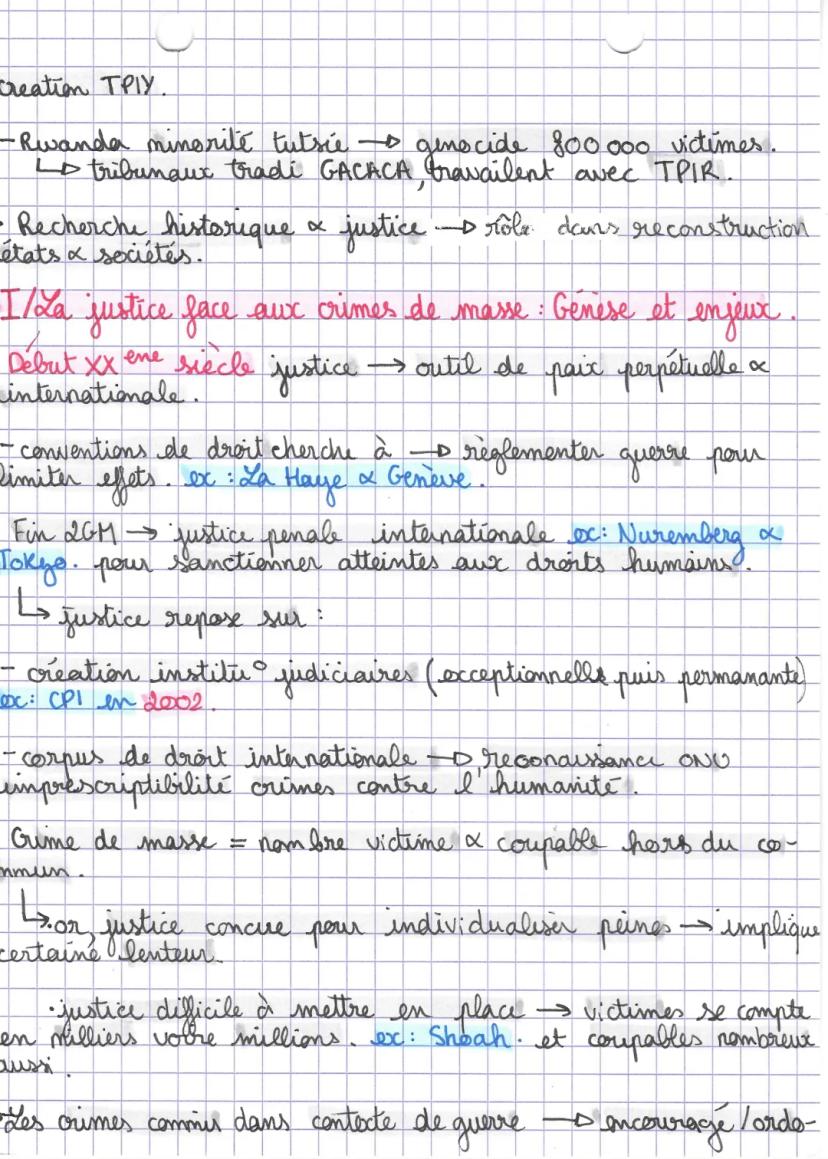 creation TPIY.
-Rwanda minorité tutsie → génocide 800 000 victimes.
↳ tribunaux tradi GACACA, travailent avec TPIR.
· Recherche historique ∝ justice → rôle dans reconstruction
états ∝ sociétés.
I/La justice face aux crimes de masse : Génèse et enjeux.
Début XX ème siècle justice → outil de paix perpétuelle ∝
internationale.
- conventions de droit cherche à → règlementer guerre pour
limiter effets. ex : La Haye ∝ Genève.
Fin 2GM → justice pénale internationale ex: Nuremberg ∝
Tokyo. pour sanctionner atteintes aux droits humains.
↳ justice repose sur :
- création institu° judiciaires (exceptionnelles puis permanante)
ex: CPI en 2002.
- corpus de droit internationale → reconaissance ONU
imprescriptibilité crimes contre l'humanité.
Crime de masse = nombre victime ∝ coupable hors du co-
mmun.
↳ or, justice concue pour individualiser peines → implique
certaine lenteur.
· justice difficile à mettre en place → victimes se compte
en milliers voire millions. ex: Shoah. et coupables nombreux
aussi.
·Les crimes commis dans contexte de guerre → encouragé/ordo-